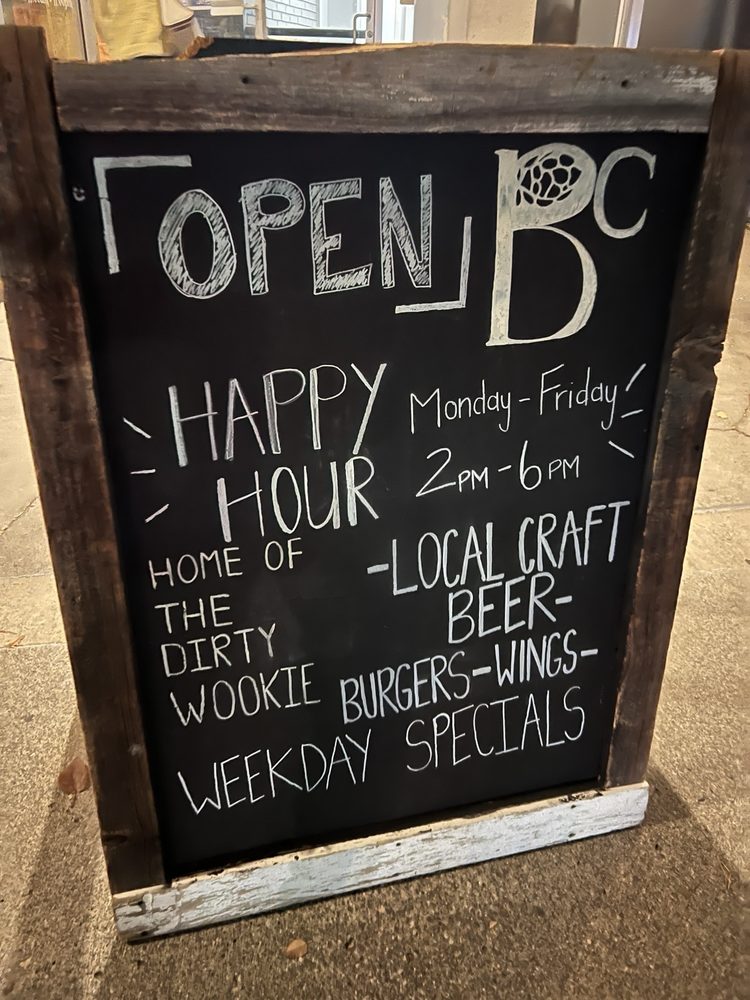 OPEN BC
HAPPY
HOUR
Monday - Friday
2PM - 6PM
HOME OF
THE
DIRTY
WOOKIE
-LOCAL CRAFT
BEER-
BURGERS-WINGS-
WEEKDAY SPECIALS